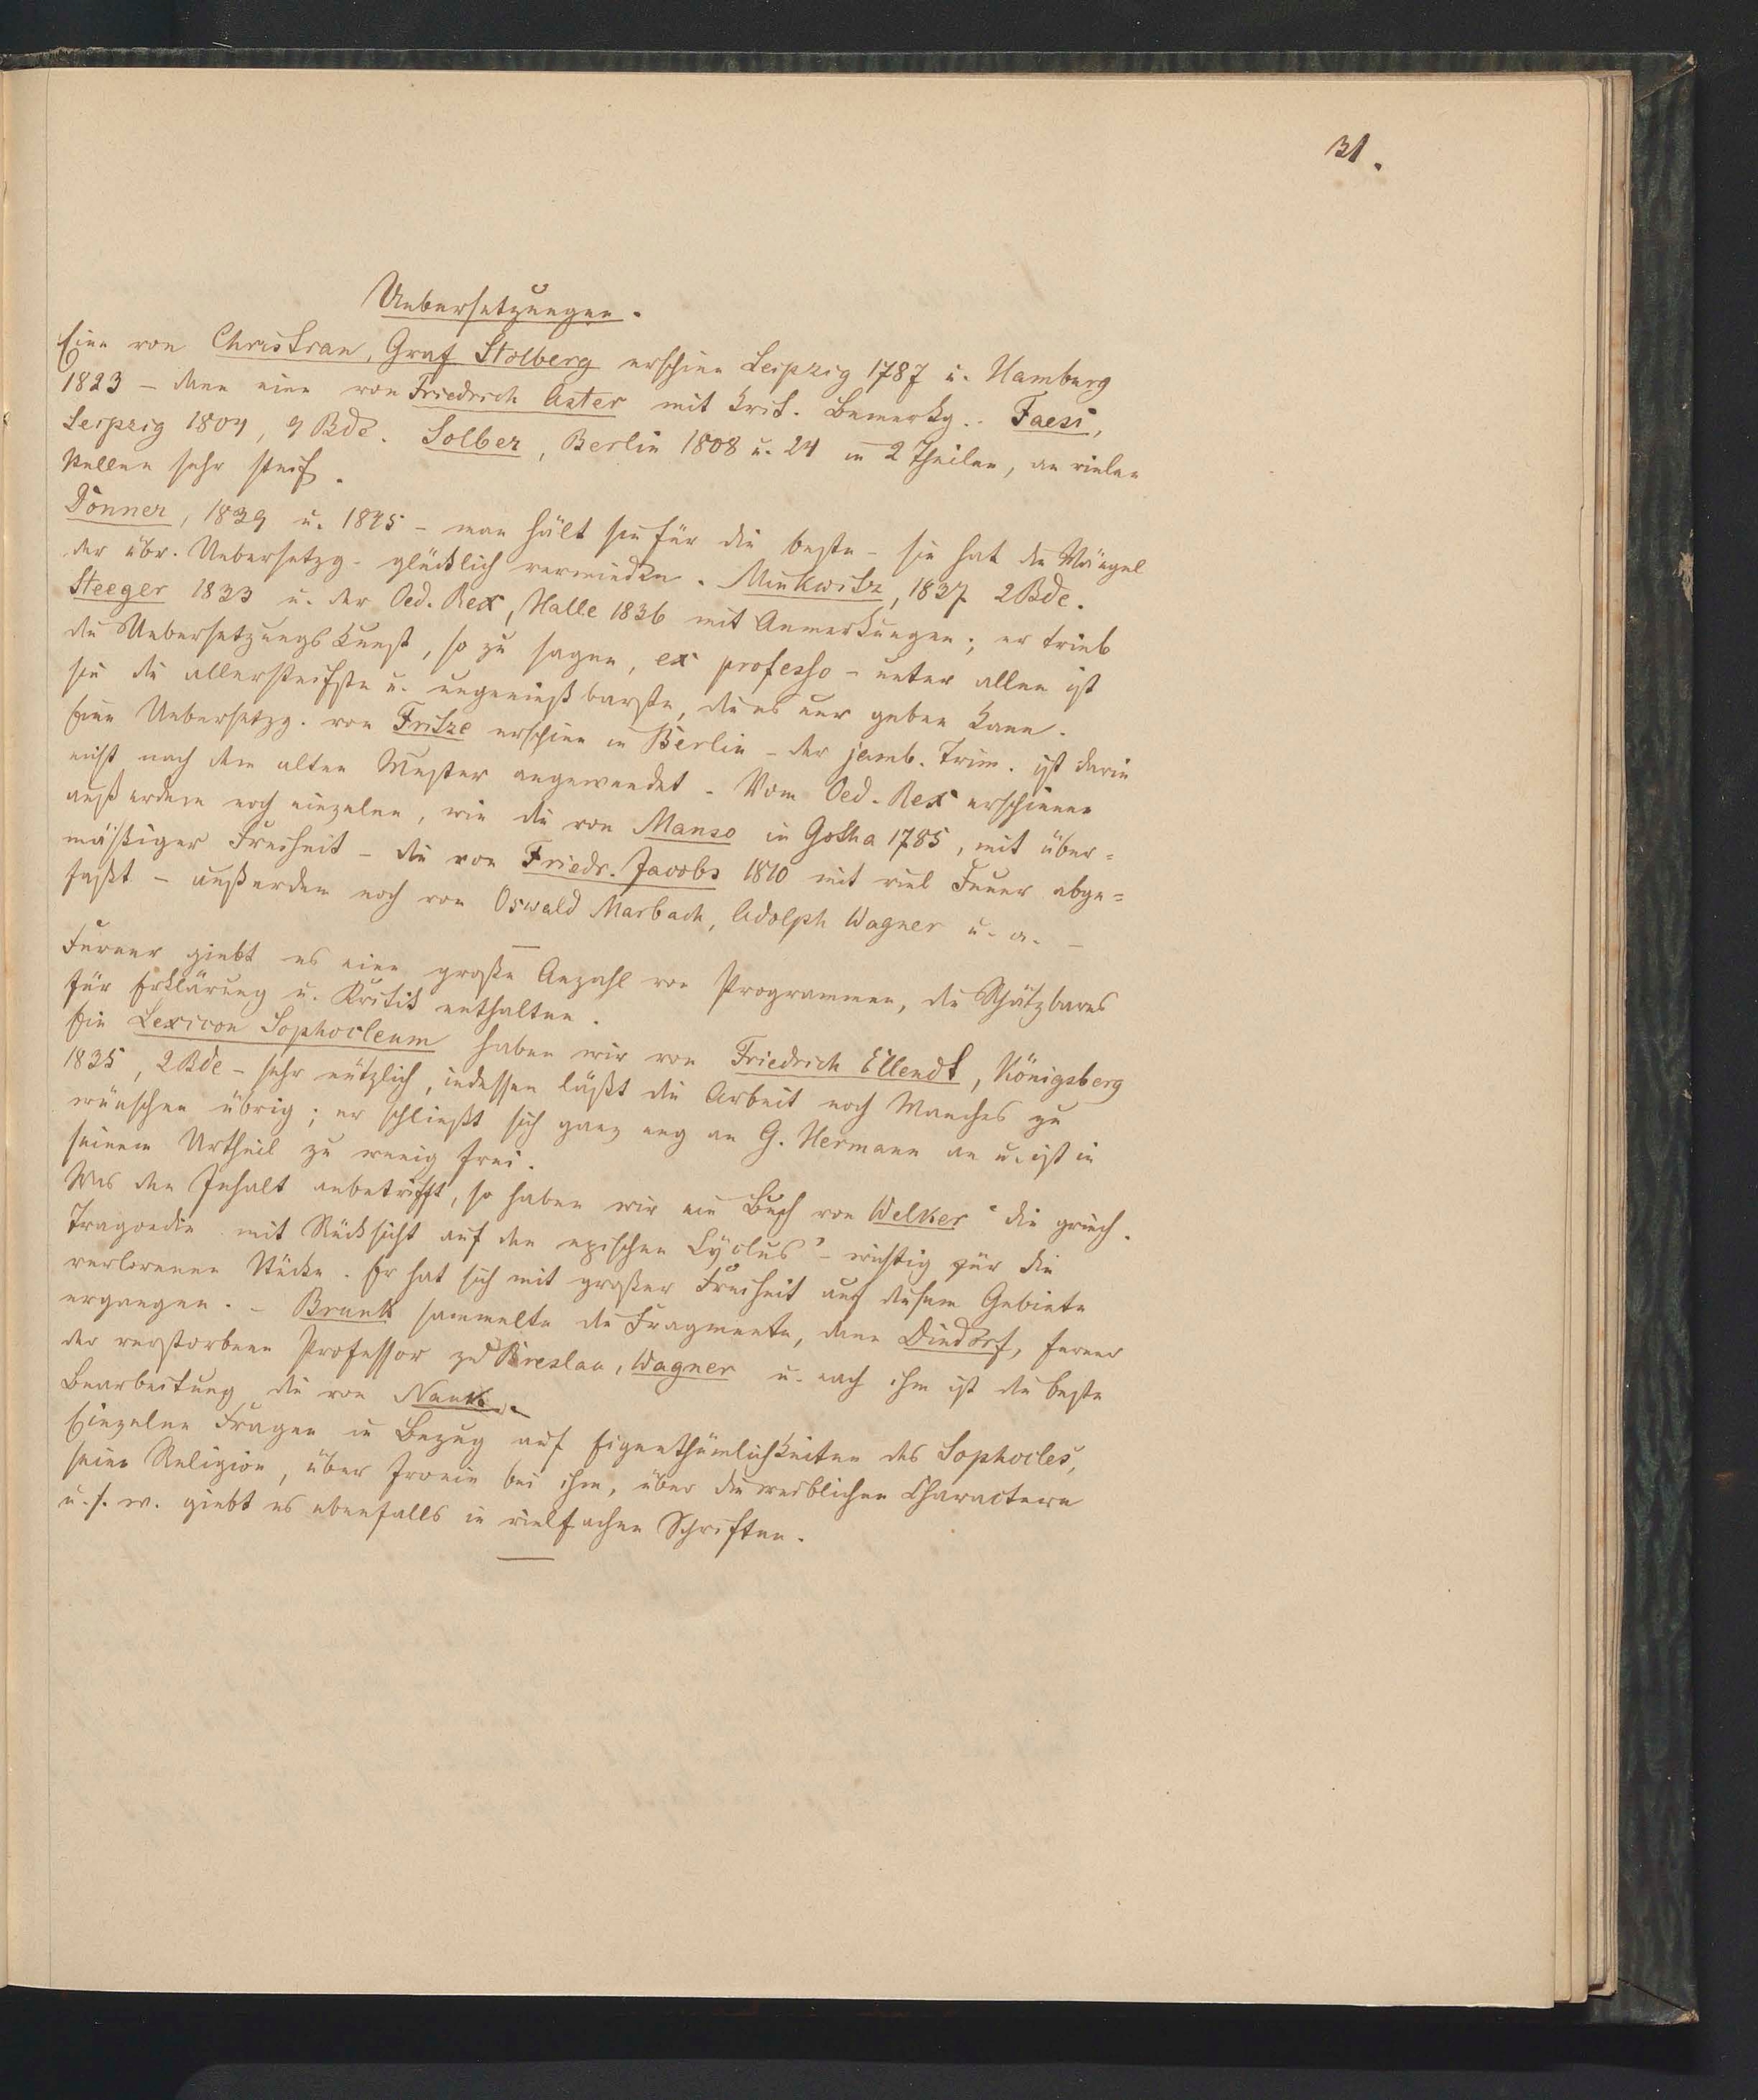 31.
Uebersetzungen.
Eine von Christian, Graf Stolberg erschien Leipzig 1787 u. Hamburg
1823 – dann eine von Friedrich Aster mit krit. Bemerkg.. Faesi,
Leipzig 1804, 2 Bde. Solber, Berlin 1808 u. 24 in 2 Theilen, an vielen
Stellen sehr steif.
Donner, 1839 u. 1845 – man hält sie für die beste – sie hat die Mängel
der übr. Uebersetzg. glücklich vermieden. Minkwitz, 1837 2 Bde.
Steeger 1833 u. der Oed. Rex, Halle 1836 mit Anmerkungen; er trieb
die Uebersetzungskunst, so zu sagen, ex professo – unter allen ist
sie die allersteifste u. ungenießbarste, die es nur geben kann.
Eine Uebersetzg. von Fritze erschien in Berlin – der jamb. Trim. ist darin
nicht nach dem alten Muster angewendet – Vom Oed. Rex erschienen
außerdem noch einzelne, wie die von Manso in Gotha 1785, mit über=
mäßiger Freiheit – die von Friedr. Jacobs 1810 mit viel Feuer abge=
faßt – außerdem noch von Oswald Marbach, Adolph Wagner u. a. –
Ferner giebt es eine große Anzahl von Programmen, die Schätzbares
für Erklärung u. Kritik enthalten.
Ein Lexicon Sophocleum haben wir von Friedrich Ellendt, Königsberg
1835, 2 Bde – sehr nützlich, indessen läßt die Arbeit noch Manches zu
wünschen übrig; er schließt sich ganz eng an G. Hermann an u. ist in
seinem Urtheil zu wenig frei.
Was den Inhalt anbetrifft, so haben wir ein Buch von Welker "die griech.
Tragoedie mit Rücksicht auf den epischen Cyclus" – wichtig für die
verlorenen Stücke. Er hat sich mit großer Freiheit auf diesem Gebiete
ergangen. – Brunk sammelte die Fragmente, dann Dindorf, ferner
der verstorbene Professor zu Breslau, Wagner u. nach ihm ist die beste
Bearbeitung die von Nauk.
Einzelne Fragen in Bezug auf Eigenthümlichkeiten des Sophocles,
seine Religion, über Ironie bei ihm, über die weiblichen Charactere
u. s. w. giebt es ebenfalls in vielfachen Schriften.